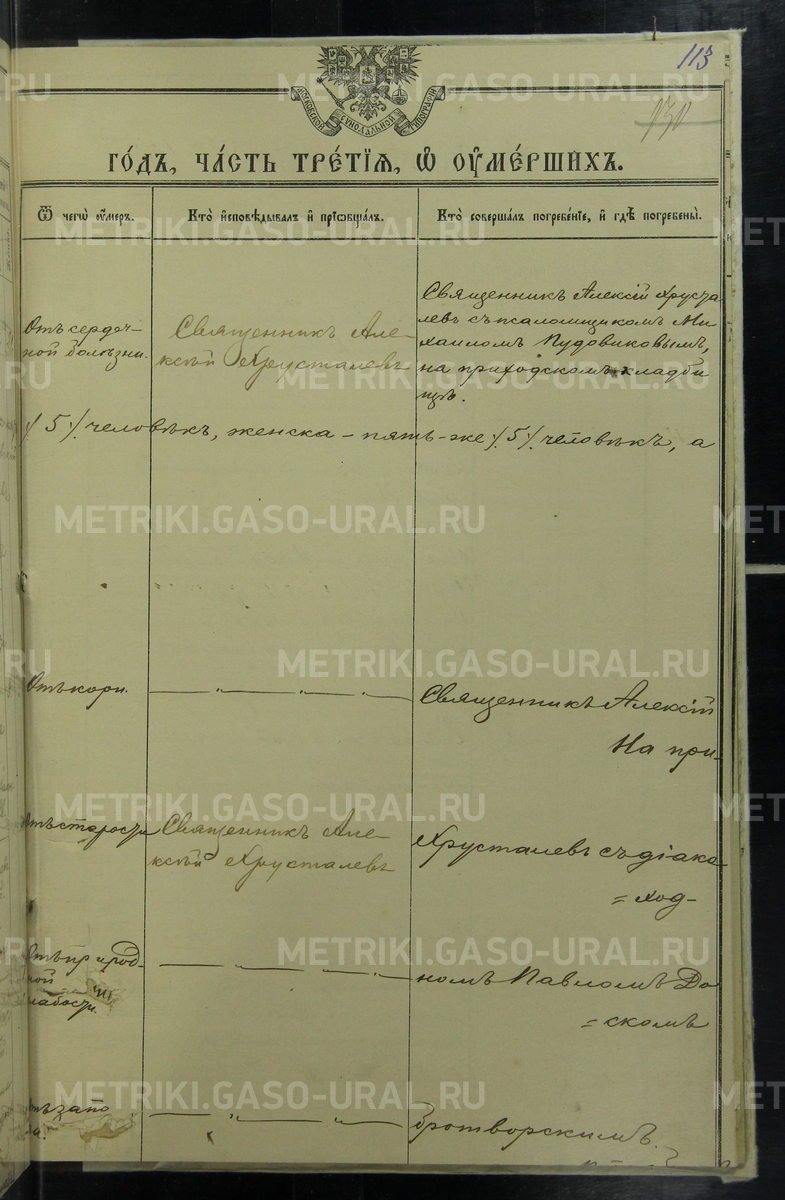 113
130
МОСКОВСКОЙ СѴНОДАЛЬНОЙ ТИПОГРАФІИ
ГО́ДЪ, ЧА́СТЬ ТРЕ́ТІЯ, Ѽ ОУ҆МЕ́РШИХЪ.
Ѿ чегѡ̀ оу҆́меръ.
Кто̀ и҆сповѣ́дывалъ и҆ прїѡбща́лъ.
Кто̀ соверша́лъ погребе́нїе, и҆ гдѣ̀ погребены̀.
Отъ сердеч-
ной болѣзни.
Священникъ Але-
ксѣй Хрусталевъ
Священникъ Алексій Хруста
левъ съ псаломщикомъ Ми
хаиломъ Пудовиковымъ,
на приходскомъ кладби
щѣ.
/5/ человѣкъ, женска – пять-же /5/ человѣкъ, а
Отъ кори.
— „ — „ — „ —
Священникъ Алексій
На при-
Отъ старости
Священникъ Але
ксѣй Хрусталевъ
Хрусталевъ съ діако
= ход-
Отъ природ-
ной
слабости.
— „ — „ — „ —
номъ Павломъ До
= скомъ
— „ — „ — „ —
бротворскимъ.
METRIKI.GASO-URAL.RU